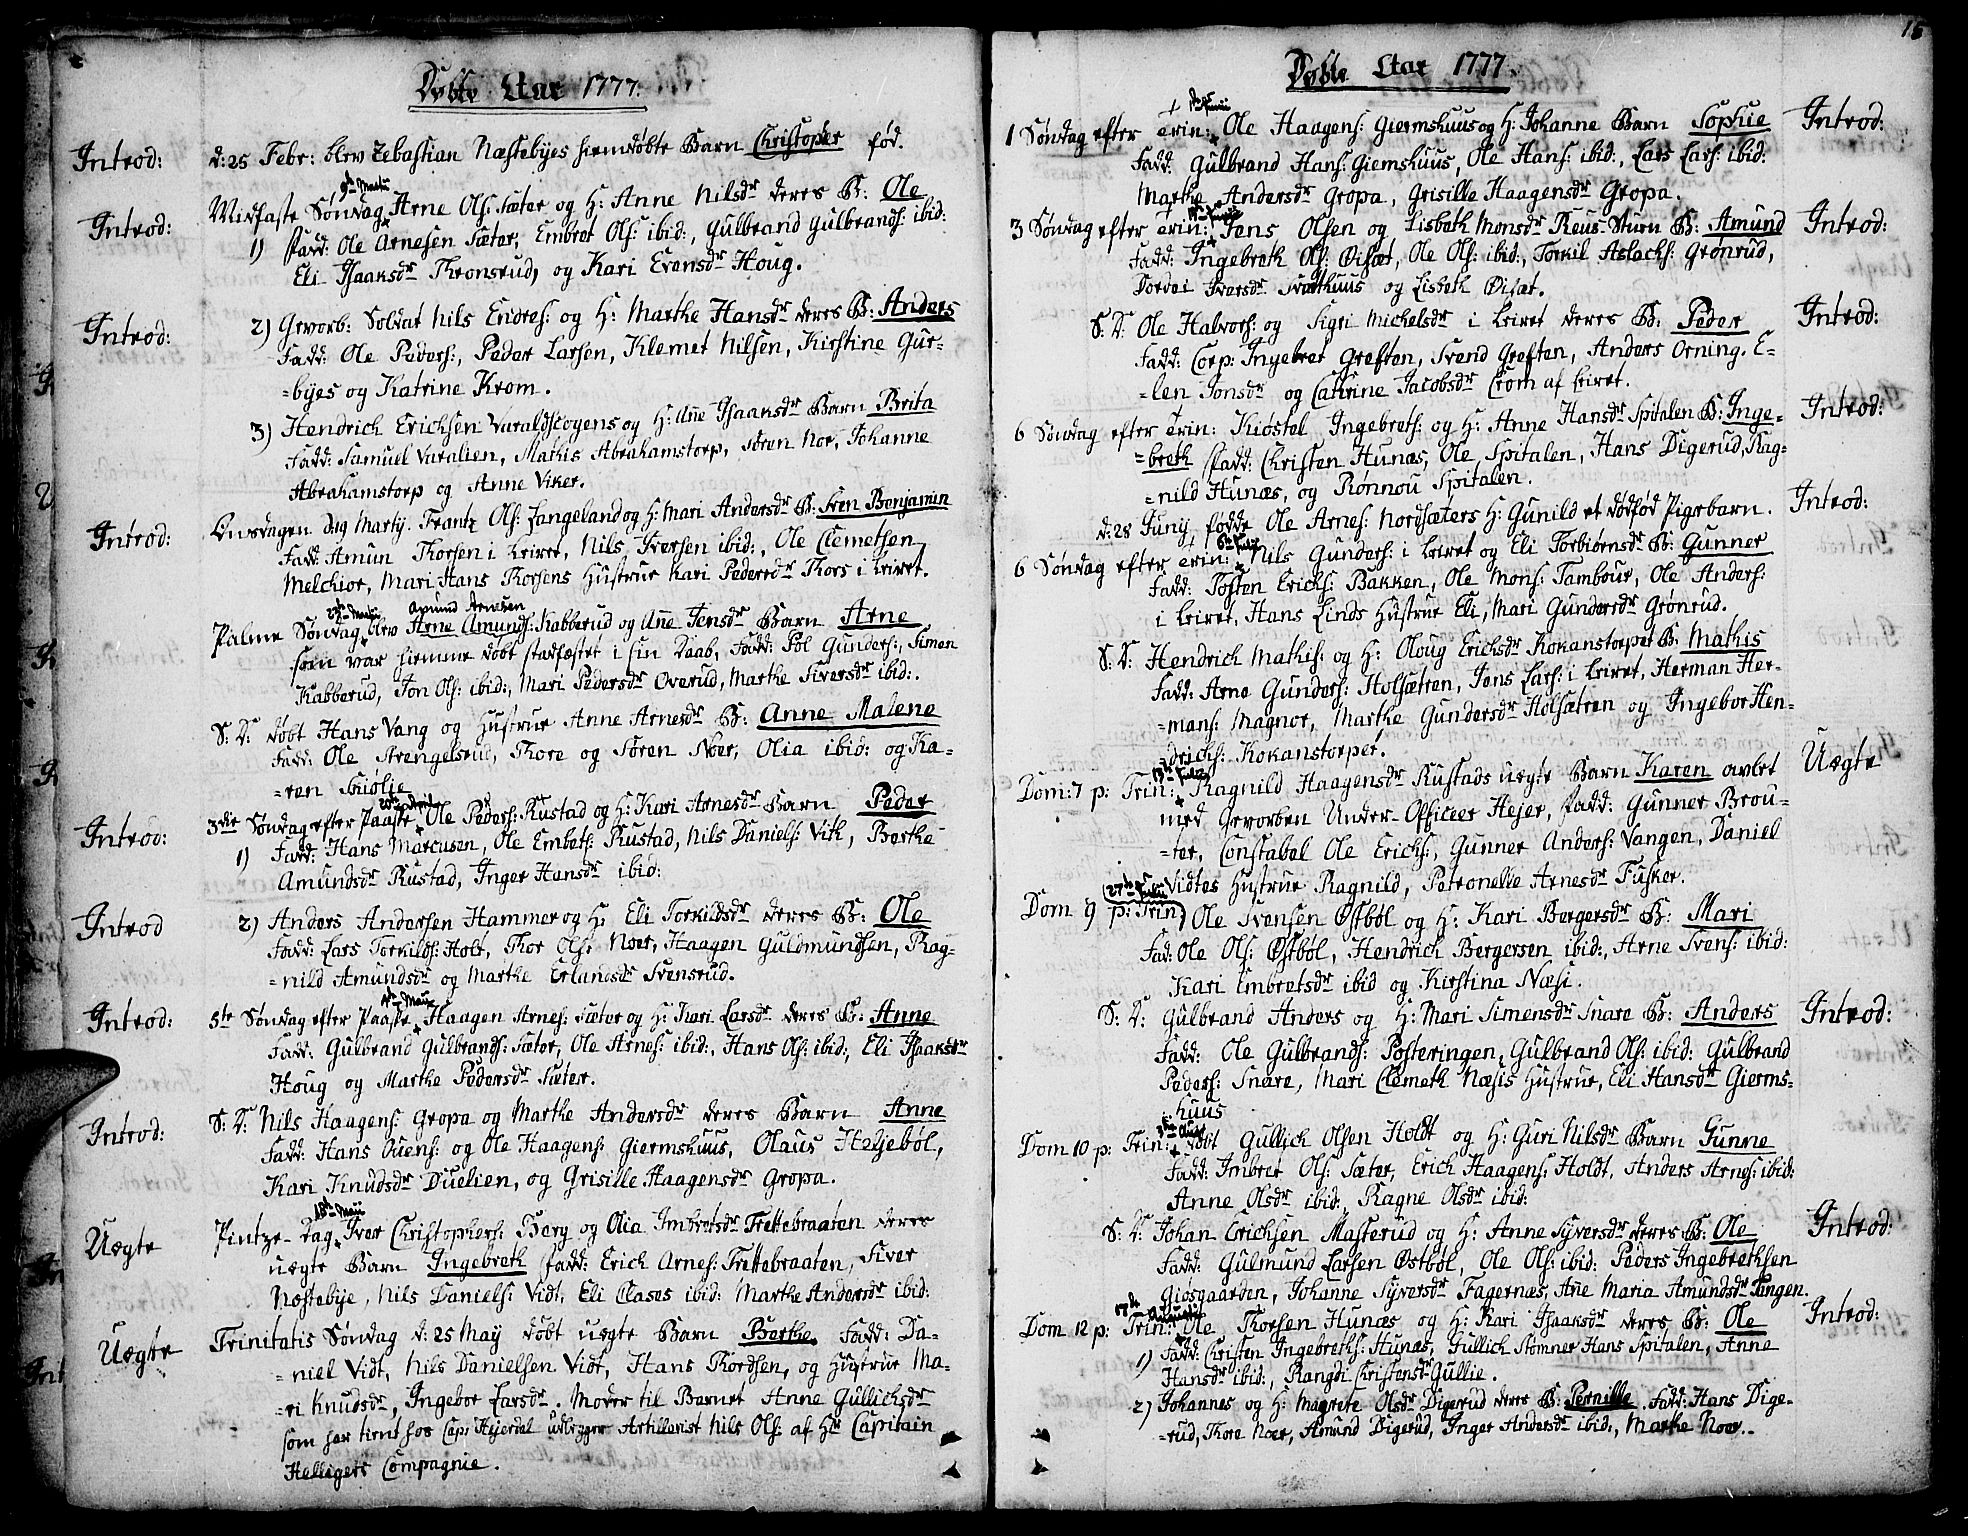 Døbte Aar 1777.
Introd: d: 25 Febr: blev Zebastian Næstebyes hiemdøbte Barn Christopher fød.
9de Martii
Introd: Midfaste Søndag Arne Ols: Sæter og H: Anne Nilsdr deres B: Ole
1) Fadd: Ole Arnesen Sæter, Embret Ols: ibid:, Gulbrand Gulbrands: ibid:
Eli Isaaksdr Thronsrud, og Kari Evensdr Houg.
Introd: 2) Gevorb: Soldat Nils Endres: og H: Marthe Hansdr deres B: Anders
Fadd: Ole Peders:, Peder Larsen, Klemet Nilsen, Kirstine Gur-
=byes og Katrine Krom.
3) Hendrich Erichsen Varaldscogens og H: Ane Isaaksdr Barn Brita
Fadd: Samuel Varalien, Mathis Abrahamstorp, Søren Nor, Johanne
Abrahamstorp og Anne Viker.
Introd: Onsdagen Marty. Frantz Ols: Langeland og H: Mari Andersdr B: Sven Benjamin
Fadd: Amun Thorsen i Leiret, Nils Iversen ibid:, Ole Clemetsen
Melchior, Mari Hans Thorsens Hustrue Kari Pedersdr Thors i Leiret.
23de Martii Amund Arnesen
Palme Søndag blev Arne Amunds: Kabberud og Ane Jensdr Barn Arne
som var hiemme døbt stadfæstet i sin Daab, Fadd: Pol Gunders:, Simen
Kabberud, Jon Ols: ibid:, Mari Pedersdr Overud, Marthe Siversdr ibid:.
S: D: døbt Hans Vang og Hustrue Anne Arnesdr B: Anne Malene
Fadd: Ole Strengelsrud, Thore og Søren Noer, Olia ibid: og Ka-
=ren Skiølje
20de April
Introd: 3die Søndag efter Paaske Ole Peders: Rustad og H: Kari Arnesdr Barn Peder
1) Fadd: Hans Marcusen, Ole Embets: Rustad, Nils Daniels: Vith, Berthe
Amundsdr Rustad, Inger Hansdr ibid:
Introd 2) Anders Andersen Hammer og H: Eli Torkildsdr deres B: Ole
Fadd: Lars Torkilds: Holt, Thor Ols: Noer, Haagen Guldmundsen, Rag-
=nild Amundsdr og Marthe Erlandsdr Svensrud.
4de May
Introd: 5te Søndag efter Paaske Haagen Arnes: Sæter og H: Kari Larsdr deres B: Anne
Fadd: Gulbrand Gulbrands: Sæter, Ole Arnes: ibid:, Hans Ols: ibid:, Eli Isaaksdr
Houg og Marthe Pedersdr Sæter.
Introd: S: D: Nils Haagens: Gropa og Marthe Andersdr deres Barn Anne
Fadd: Hans Ouens: og Ole Haagens: Giermshuus, Olaus Heljebøl,
Kari Knudsdr Duelien, og Grisille Haagensdr Gropa.
18de Maii
Uægte Pintze-Dag Iver Christophers: Berg og Olia Imbretsdr Trettebraaten deres
uægte Barn Ingebreth Fadd: Erich Arnes: Trettebraaten, Siver
Næstebye, Nils Daniels: Vidt, Eli Clases ibid: Marthe Andersdr ibid:
Uægte Trinitatis Søndag d: 25 May døbt uægte Barn Berthe Fadd: Da-
=niel Vidt, Nils Danielsen Vidt, Hans Thordsen, og Hustrue Ma-
=ri Knudsdr, Ingebor Larsdr. Moder til Barnet Anne Gullichsdr
som har tient hos Cap: Hejerdal udlegger Artillerist Nils Ols: af Hr Capitain
Helligers Compagnie.
15
Døbte Aar 1777.
1te Junii
1 Søndag efter Trin: Ole Haagens: Giermshuus og H: Johanne Barn Sophie Introd:
Fadd: Gulbrand Hans: Giemshuus, Ole Hans: ibid:, Lars Lars: ibid:
Marthe Andersdr Gropa, Grisille Haagensdr Gropa.
3 Søndag efter Trin: Jens Olsen og Lisbeth Monsdr Reus-Stuen B: Amund Introd:
Fadd: Ingebreth Ols: Øisæt, Ole Ols: ibid:, Torkil Aslachs: Grønrud,
Dordei Iversdr Svarthuus og Lisbeth Øisæt.
S: D: Ole Halvors: og Sigri Michelsdr i Leiret deres B: Peder Introd:
Fadd: Corp: Ingebret Greften, Svend Greften, Anders Orning. E-
=len Jonsdr og Cathrine Jacobsdr Crom af Leiret.
6 Søndag efter Trin: Kiøstel Ingebrets: og H: Anne Hansdr Spitalen B: Inge- Introd:
=breth Fadd: Christen Hunæs, Ole Spitalen, Hans Digerud, Rag-
=nild Hunæs, og Rønnou Spitalen.
d: 28 Juny, fødde Ole Arnes: Nordsæters H: Gunild et dødfød Pigebarn. Introd:
6te Julii
6 Søndag efter Trin: Nils Gunders: i Leiret og Eli Torbiørnsdr B: Gunner
Fadd: Tosten Erichs: Bakken, Ole Mons: Tambour, Ole Anders:
i Leiret, Hans Linds Hustrue Eli, Mari Gundersdr Grønrud.
S: D: Hendrich Mathis: og H: Oloug Erichsdr Rokanstorpet B: Mathis
Fadd: Arne Gunders: Holsætren, Jens Lars: i Leiret, Herman Her-
=mans: Magnor, Marthe Gundersdr Holsætren og Ingebor Hen-
=drichs: Kokanstorpet.
13de Julii
Dom: 7 p: Trin: Ragnild Haagensdr Rustads uægte Barn Karen avlet Uægte
med Gevorben Under-Officeer Hejer, Fadd: Gunner Brou-
=ter, Constabel Ole Erichs:, Gunner Anders: Vangen, Daniel
Vidtes Hustrue Ragnild, Petronelle Arnesdr Fusker.
27de Julii
Dom 9 p: Trin, Ole Svensen Østbøl og H: Kari Bergersdr B: Mari
Fad: Ole Ols: Østbøl, Hendrich Bergersen ibid:, Arne Svens: ibid:
Kari Embretsdr ibid og Kirstina Næsi.
S: D: Gulbrand Anders og H: Mari Simensdr Snare B: Anders Introd:
Fadd: Ole Gulbrands: Posteringen, Gulbrand Ols: ibid: Gulbrand
Peders: Snare, Mari Clemeth Næsis Hustrue, Eli Hansdr Gierms-
huus
3de Aug
Dom 10 p: Trin: døbt Gullich Olsen Holdt og H: Guri Nilsdr Barn Gunne
Fadd: Imbret Ols: Sæter, Erich Haagens: Holdt, Anders Arnes: ibid:
Anne Olsdr ibid:, Ragne Olsdr ibid:
S: D: Johan Erichsen Masterud og H: Anne Syversdr deres B: Ole Introd:
Fadd: Gulmund Larsen Østbøl, Ole Ols: ibid: Peders Ingebrethsen
Giøsgaarden, Johanne Syversdr Fagernæs, Ane Maria Amundsdr Tangen.
17de Augusti
Dom 12 p: Trin: Ole Thorsen Hunæs og H: Kari Isaaksdr deres B: Ole Introd:
1) Fadd: Christen Ingebreths: Hunæs, Gullich Stømner Hans Spitalen, Anne
Hansdr ibid:, Rangdi Christensdr Gullie.
2) Johannes og H: Magrete Olsdr Digerud deres B: Pernille. Fadd: Hans Dige-
=rud, Thore Noer, Amund Digerud, Inger Andersdr ibid:, Marthe Noer.